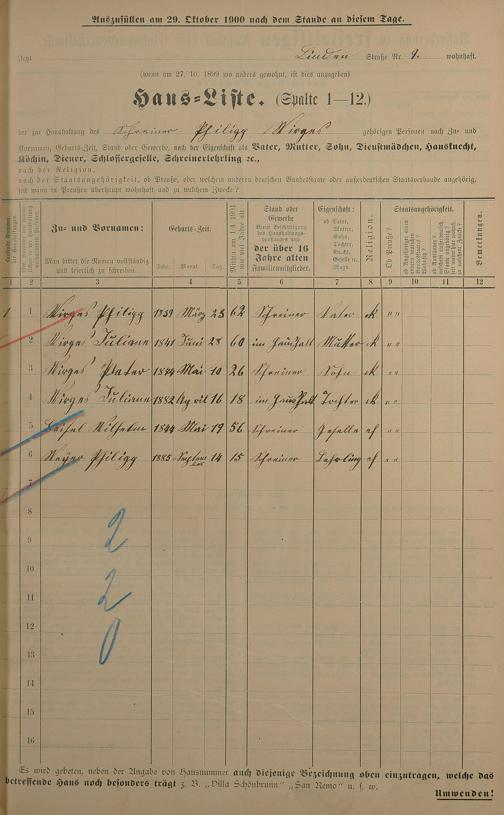 Auszufüllen am 29. Oktober 1900 nach dem Stande an diesem Tage.
Jetzt Linden Straße Nr. 9. wohnhaft.
(wenn am 27. 10. 1899 wo anders gewohnt, ist dies anzugeben)
Haus-Liste. (Spalte 1—12.)
der zur Haushaltung des Schreiner Philipp Wirges gehörigen Personen nach Zu- und
Vornamen, Geburts-Zeit, Stand oder Gewerbe, nach der Eigenschaft als Vater, Mutter, Sohn, Dienstmädchen, Hausknecht,
Köchin, Diener, Schlossergeselle, Schreinerlehrling ꝛc.,
nach der Religion,
nach der Staatsangehörigkeit, ob Preuße, oder welchem anderen deutschen Bundesstaate oder außerdeutschen Staatsverbande angehörig,
seit wann in Preußen überhaupt wohnhaft und zu welchem Zwecke?
Zu- und Vornamen:
Man bittet die Namen vollständig
und leserlich zu schreiben.
Geburts-Zeit.
Jahr. Monat. Tag
Mithin am 1.4.1901
nur voll Jahre alt.
Stand oder
Gewerbe
der über 16
Jahre alten
Familienmitglieder.
Eigenschaft:
ob Vater,
Mutter,
Sohn,
Tochter,
Knecht,
Geselle u.
Magd.
Religion.
Staatsangehörigkeit.
Ob Preuße?
Bemerkungen.
1 2 3 4 5 6 7 8 9 10 11 12
1 1 Wirges Philipp 1839 März 28 62 Schreiner Vater k "
2 Wirges Juliane 1841 Juni 28 60 im Haushalt Mutter k "
3 Wirges Peter 1874 Mai 10 26 Schreiner Sohn k "
4 Wirges Juliane 1882 April 16 18 im Haushalt Tochter k "
5 Wilhelm 1844 Mai 19 56 Schreiner Geselle "
6 Meyer Philipp 1885 September 14 15 Schreiner Lehrling "
7
8
9 2
10
11 2
12
13 0
14
15
16
Es wird gebeten, neben der Angabe von Hausnummer auch diejenige Bezeichnung oben einzutragen, welche das
betreffende Haus noch besonders trägt z. B. „Villa Schönbrunn" „San Remo" u. s. w.
Umwenden!